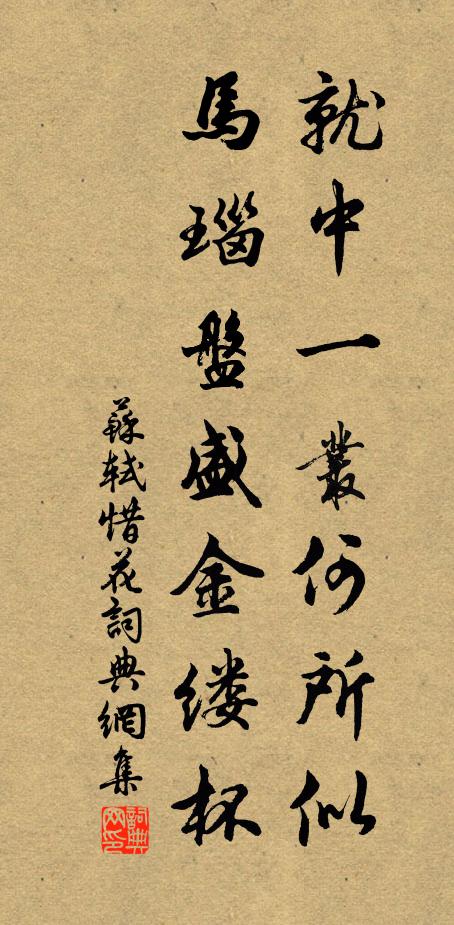 就中一叢何所似
馬瑙盤盛金缕杯
蘇軾惜花詞典網集
詞典网印